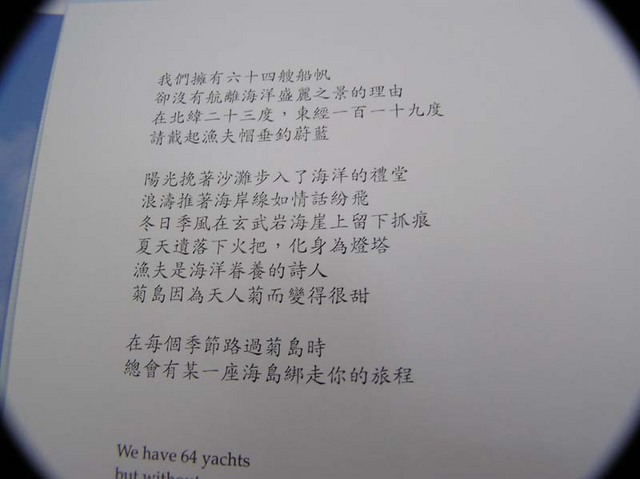 我們擁有六十四艘船帆
卻沒有航離海洋盛麗之景的理由
在北緯二十三度，東經一百一十九度
請戴起漁夫帽垂釣蔚藍
陽光挽著沙灘步入了海洋的禮堂
浪濤推著海岸線如情話紛飛
冬日季風在玄武岩海崖上留下抓痕
夏天遺落下火把，化身為燈塔
漁夫是海洋眷養的詩人
菊島因為天人菊而變得很甜
在每個季節路過菊島時
總會有某一座海島綁走你的旅程
We have 64 yachts
but without